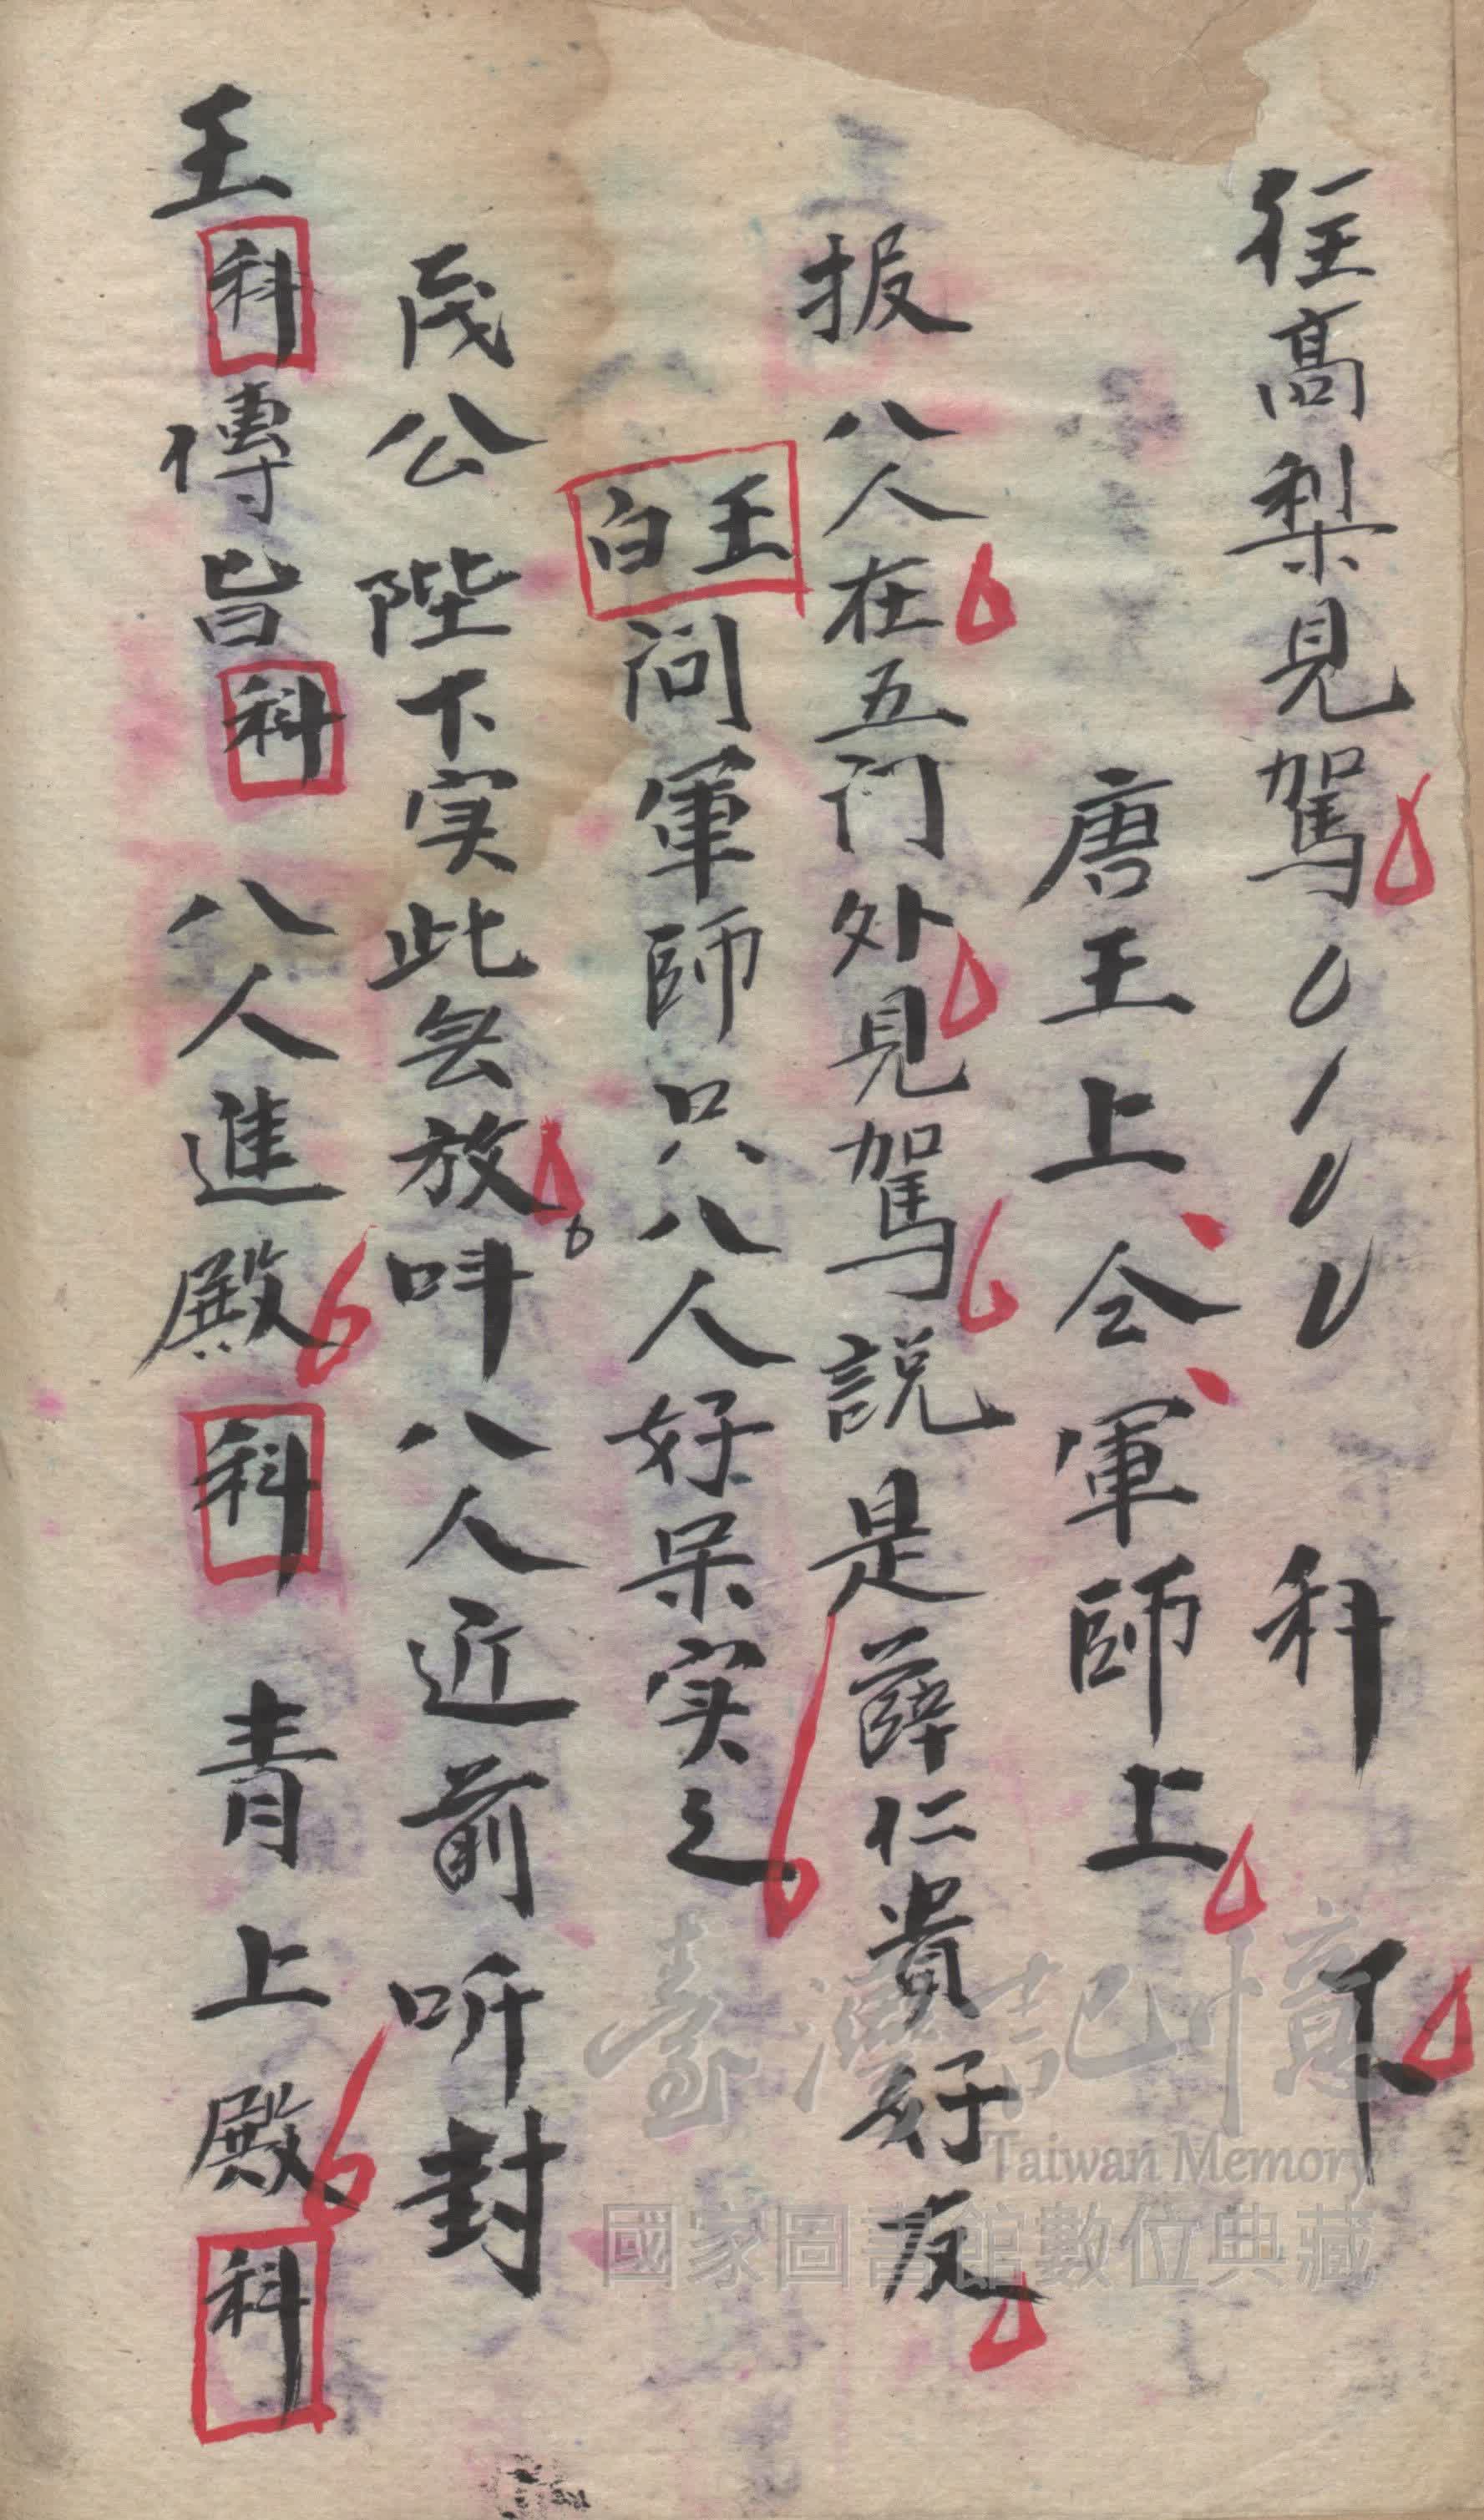 徃高梨見駕 科 下
唐王上 仝軍師上
报 八人在五门外見駕說是薛仁貴好友
王白 问軍師只八人好呆实之
茂公 陛下实此无放呌八人近前听封
王 科 傳旨 科 八人進殿 科 青上殿 科
臺灣記憶
Taiwan Memory
國家圖書館數位典藏